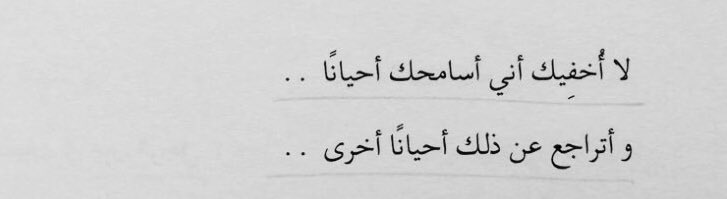 لا أُخفِيك أني أسامحك أحيانًا . .
و أتراجع عن ذلك أحيانًا أخرى . .